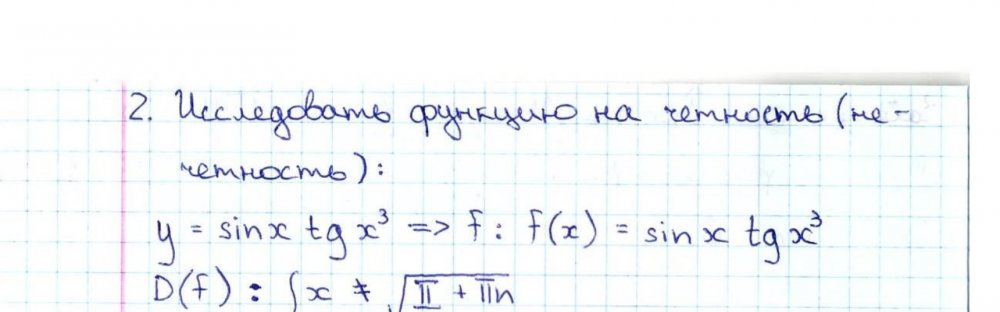 2. Исследовать функцию на четность (не-
четность):
y = sinx tg x³ => f: f(x) = sinx tg x³
D(f): { x ≠ √π + πn